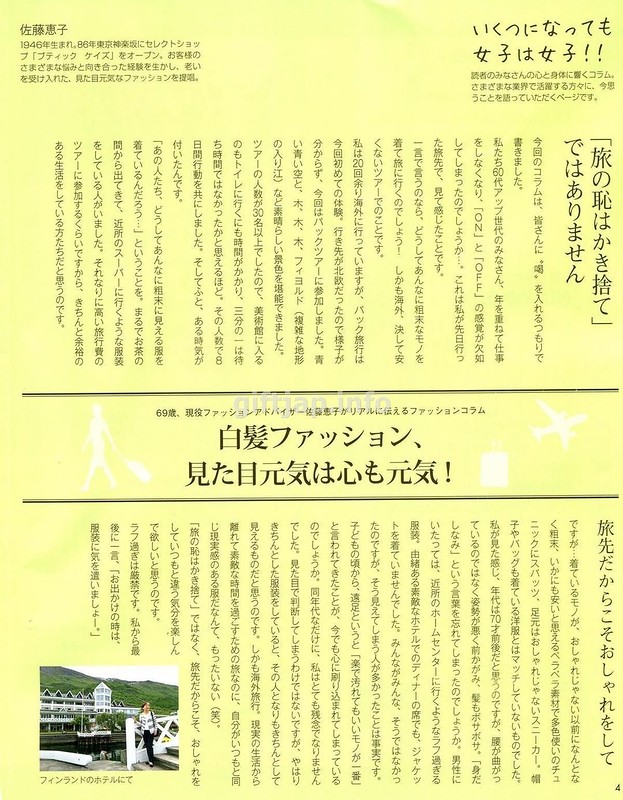 佐藤恵子
1946年生まれ。86年東京神楽坂にセレクトショッ
プ「ブティック ケイズ」をオープン。お客様の
さまざまな悩みと向き合った経験を生かし、老い
を受け入れた、見た目元気なファッションを提唱。
いくつになっても
女子は女子!!
読者のみなさんの心と身体に響くコラム。
さまざまな業界で活躍する方々に、今思
うことを語っていただくページです。
「旅の恥はかき捨て」
ではありません
今回のコラムは、皆さんに“喝”を入れるつもりで
書きました。
私たち60代アップ世代のみなさん、年を重ねて仕事
をしなくなり、「ON」と「OFF」の感覚が欠如
してしまったのでしょうか…。これは私が先日行っ
た旅先で、見て感じたことです。
一言で言うのなら、どうしてあんなに粗末なモノを
着て旅に行くのでしょう!しかも海外、決して安
くないツアーでのことです。
私は20回余り海外に行っていますが、パック旅行は
今回初めての体験。行き先が北欧だったので様子が
分からず、今回はパックツアーに参加しました。青
い青い空と、木、木、木、フィヨルド(複雑な地形
の入り江)など素晴らしい景色を堪能できました。
ツアーの人数が30名以上でしたので、美術館に入る
のもトイレに行くにも時間がかかり、三分の一は待
ち時間ではなかったかと思えるほど。その人数で8
日間行動を共にしました。そしてふと、ある時気が
付いたんです。
「あの人たち、どうしてあんなに粗末に見える服を
着ているんだろう…」ということを。まるでお茶の
間から出てきて、近所のスーパーに行くような服装
をしている人がいました。それなりに高い旅行費の
ツアーに参加するくらいですから、きちんと余裕の
ある生活をしている方たちだと思うのです。
giftjap.info
69歳、現役ファッションアドバイザー佐藤恵子がリアルに伝えるファッションコラム
白髪ファッション、
見た目元気は心も元気!
旅先だからこそおしゃれをして
ですが…着ているモノが、おしゃれじゃない以前になんとな
く粗末、いかにも安いと思えるペラペラ素材で多色使いのチュ
ニックにスパッツ、足元はおしゃれじゃないスニーカー。帽
子やバッグも着ている洋服とはマッチしていないものでした。
私が見た感じ、年代は70才前後だと思うのですが、腰が曲がっ
ているのではなく姿勢が悪く前かがみ、髪もボサボサ。「身だ
しなみ」という言葉を忘れてしまったのでしょうか。男性に
いたっては、近所のホームセンターに行くようなラフ過ぎる
服装。由緒ある素敵なホテルでのディナーの席でも、ジャケッ
トを着ていませんでした。みんながみんな、そうではなかっ
たのですが、そう見えてしまう人が多かったことは事実です。
子どもの頃から、遠足というと「楽で汚れてもいいモノが一番」
と言われてきたことが、今でも心に刷り込まれてしまっている
のでしょうか。同年代なだけに、私はとても残念でなりません
でした。見た目で判断してしまうわけではないですが、やはり
きちんとした服装をしていると、その人となりもきちんとして
見えるものだと思うのです。しかも海外旅行。現実の生活から
離れて素敵な時間を過ごすための旅なのに、自分がいつもと同
じ現実感のある服だなんて、もったいない(笑)。
「旅の恥はかき捨て」ではなく、旅先だからこそ、おしゃれを
していつもと違う気分を楽しん
で欲しいと思うのです。
ラフ過ぎは厳禁です。私から最
後に一言、「お出かけの時は、
服装に気を遣いましょー。」
フィンランドのホテルにて
4